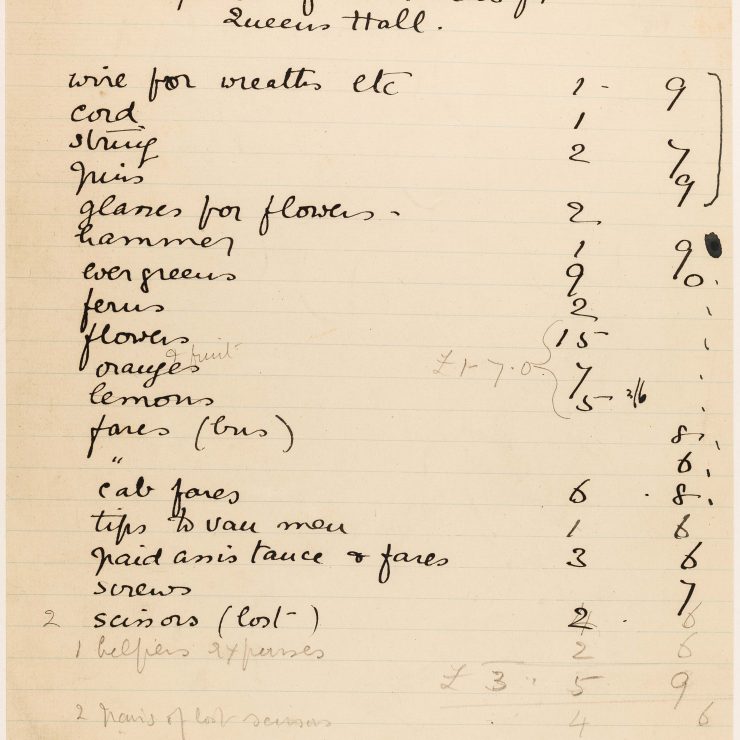 Queens Hall.
wire for wreaths etc 1 - 9
cord 1
string 2 7
pins 9
glasses for flowers - 2
hammer 1 9
evergreens 9 0
ferns 2
flowers 15
& fruit
oranges £1-7.0 7
lemons 5 2/6
fares (bus) 8
" 6
cab fares 6 . 8
tips to van men 1 6
paid assistance & fares 3 6
screws 7
2 scissors (lost) 2 . 6
1 helpers expenses 2 6
£ 3 5 9
2 pairs of lost scissors 4 6